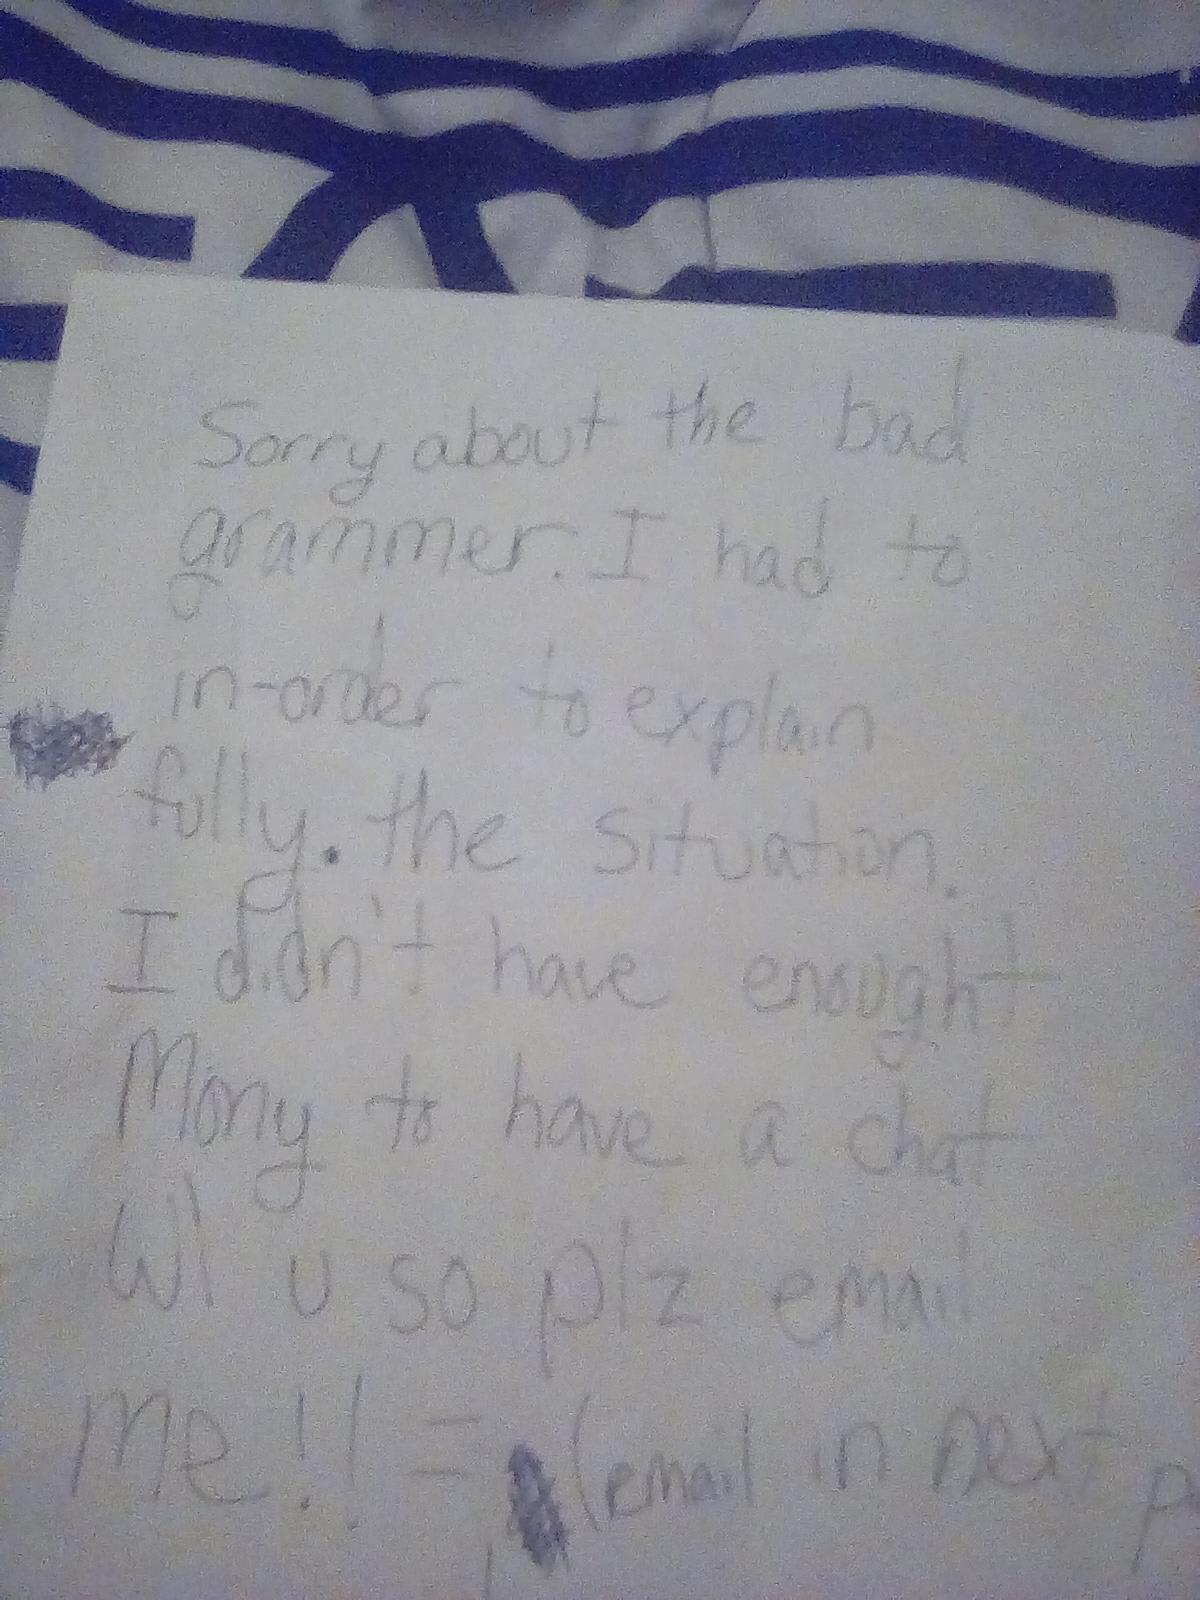 Sorry about the bad
grammer. I had to
in-order to explain
fully. the situation.
I didn't have enought
Mony to have a chat
W\ u so plz email
Me!! = (email in next p